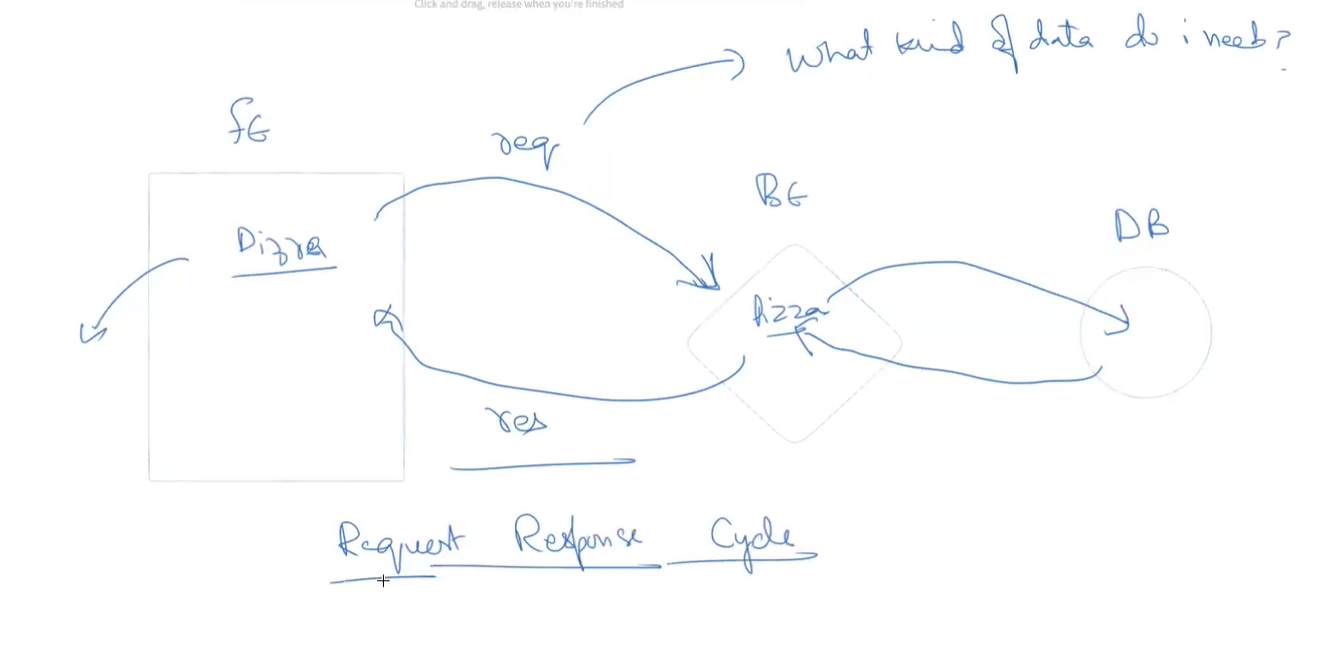 Click and drag, release when you're finished
What kind of data do i need?
FE
req
BE
DB
Pizza
Pizza
res
Request Response Cycle